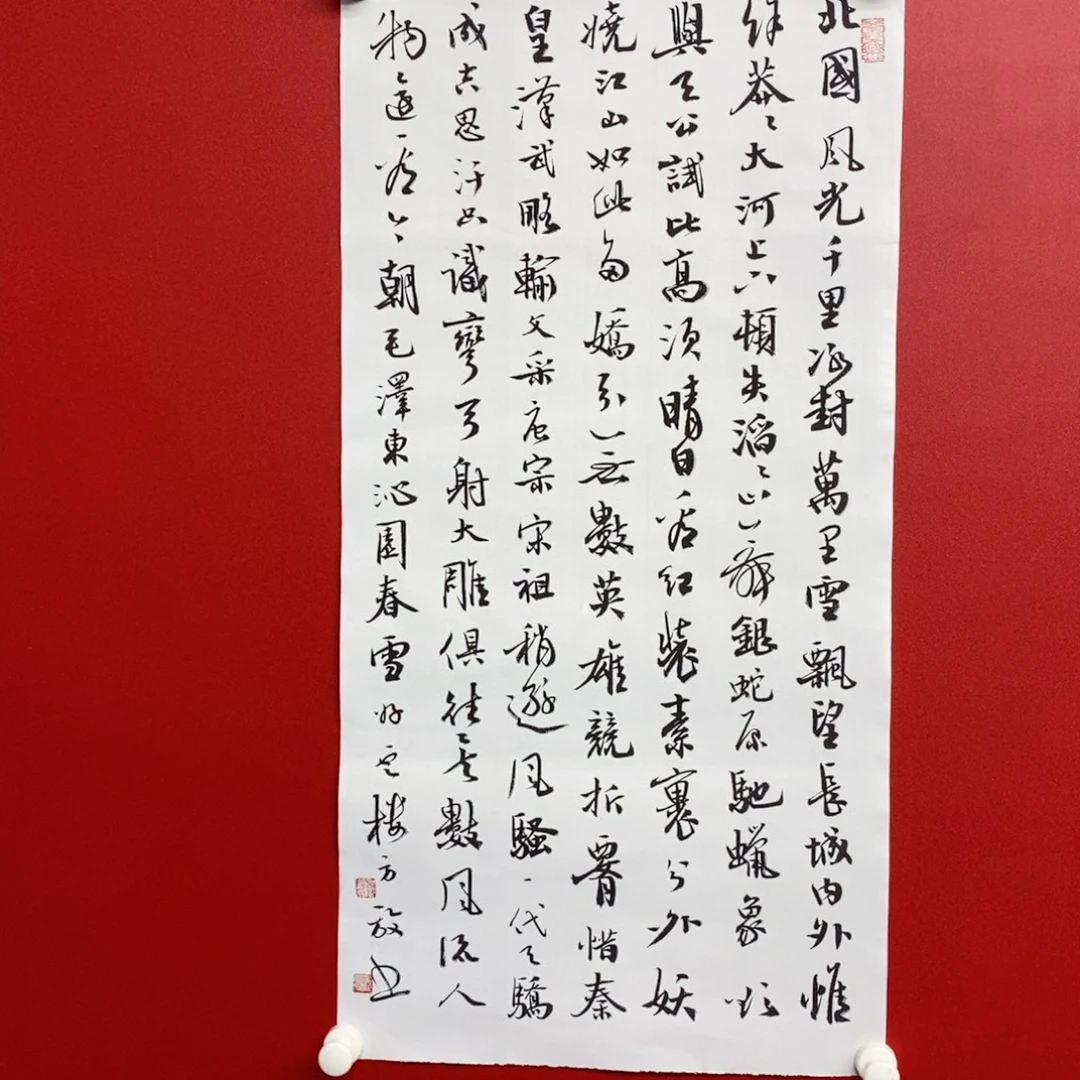 北國風光千里冰封萬里雪飄望長城内外惟
餘莽々大河上下頓失滔々山舞銀蛇原馳蠟象欲
與天公試比高須晴日看紅裝素裹分外妖
嬈江山如此多嬌引無數英雄競折腰惜秦
皇漢武略輸文采唐宗宋祖稍遜風騷一代天驕
成吉思汗只識彎弓射大雕俱往矣數風流人
物還看今朝毛澤東沁園春雪樓方書